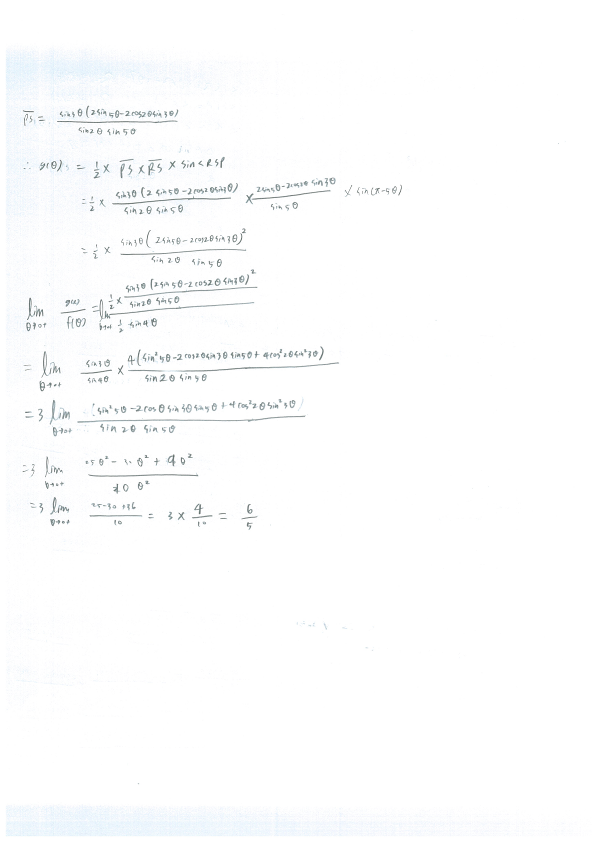 PS = sin3θ(2sin5θ-2cos2θsin3θ) / sin2θ sin5θ
∴ g(θ) = 1/2 × PS × RS × sin<RSP
= 1/2 × sin3θ(2sin5θ-2cos2θsin3θ) / sin2θ sin5θ × 2sin5θ-2cos2θsin3θ / sin5θ × sin(π-5θ)
= 1/2 × sin3θ(2sin5θ-2cos2θsin3θ)² / sin2θ sin5θ
lim θ→0+ g(θ) / f(θ) = lim θ→0+ 1/2 × sin3θ(2sin5θ-2cos2θsin3θ)² / sin2θ sin5θ / 1/2 sin4θ
= lim θ→0+ sin3θ / sin4θ × 4(sin²5θ-2cos2θsin3θsin5θ+4cos²2θsin²3θ) / sin2θ sin5θ
= 3 lim θ→0+ (sin²5θ-2cosθsin3θsin5θ+4cos²2θsin²3θ) / sin2θ sin5θ
= 3 lim θ→0+ 25θ²-30θ²+9θ² / 10θ²
= 3 lim θ→0+ 25-30+36 / 10 = 3 × 4/10 = 6/5